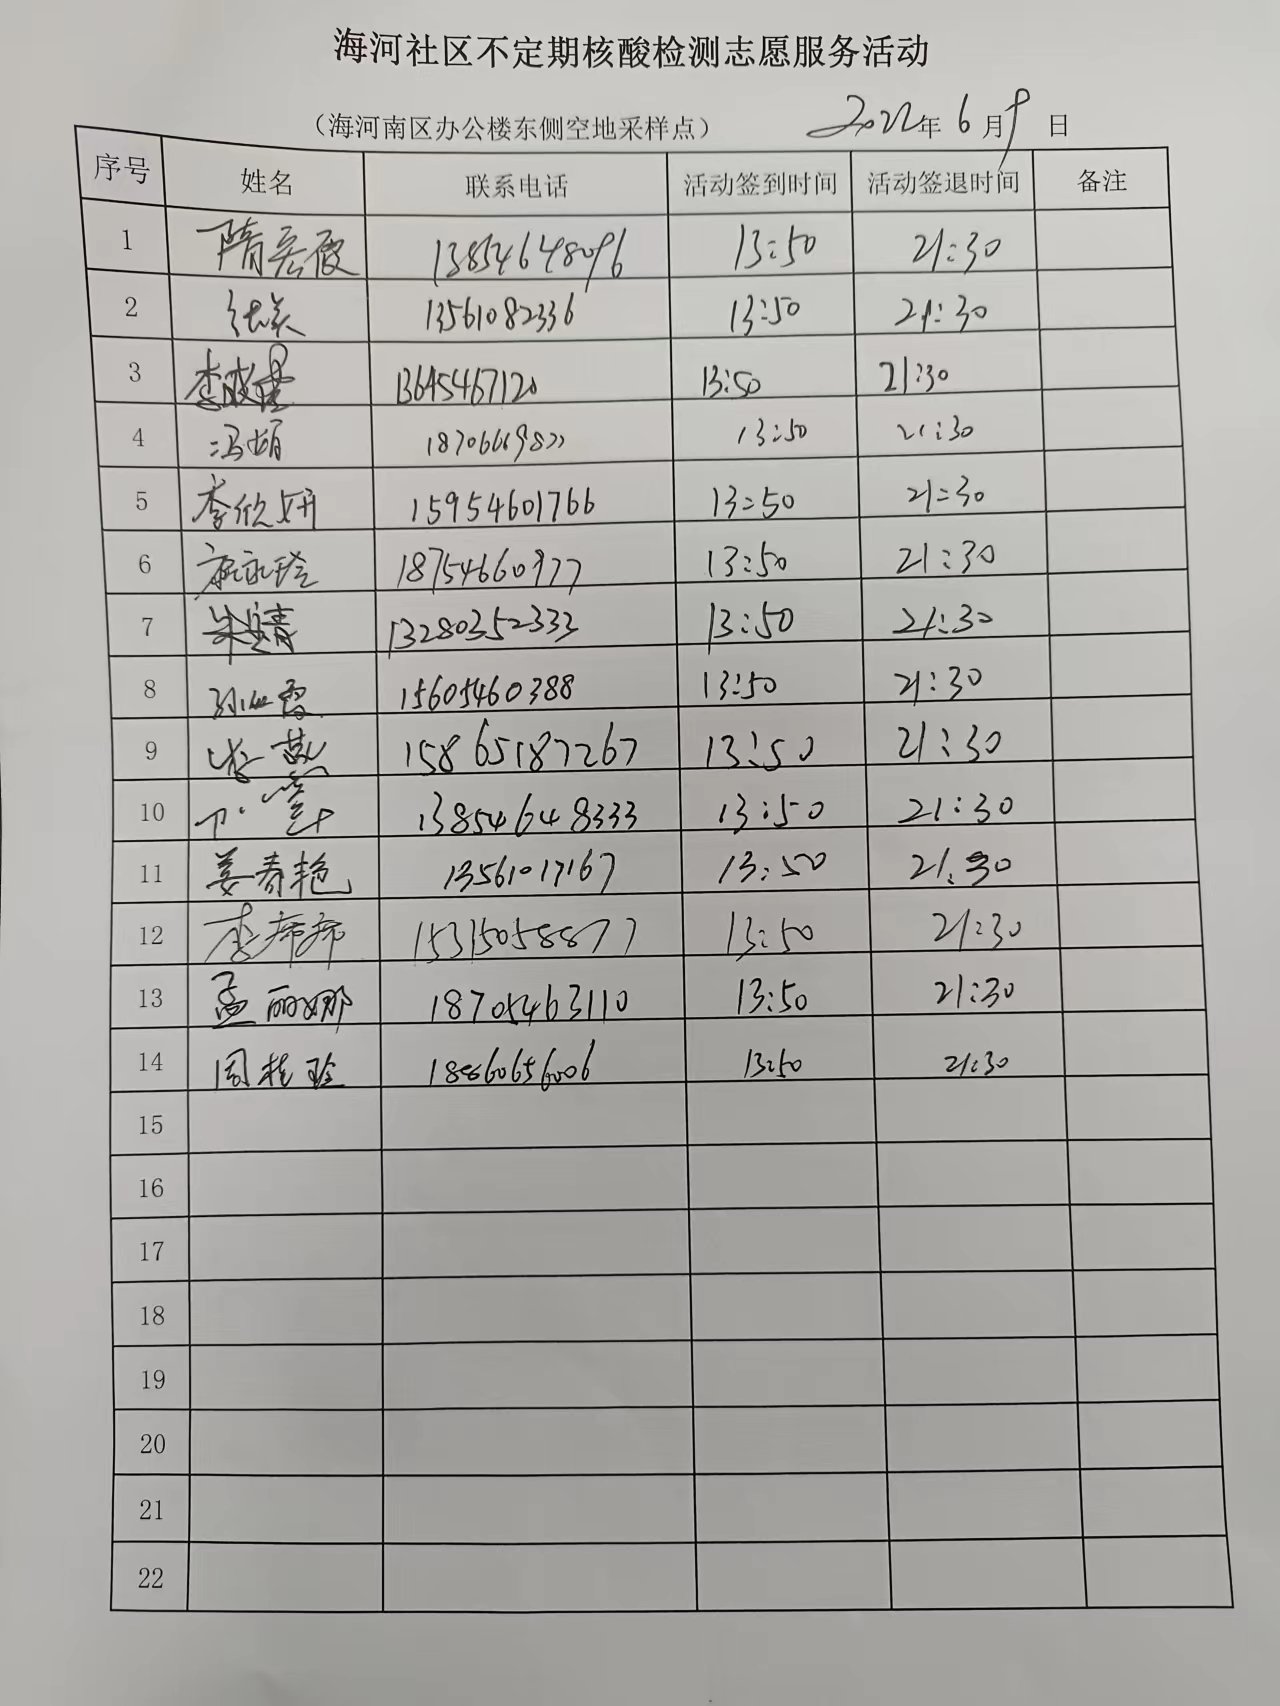 海河社区不定期核酸检测志愿服务活动
（海河南区办公楼东侧空地采样点） 2022年 6 月 9 日
序号 姓名 联系电话 活动签到时间 活动签退时间 备注
1 隋宏霞 13854648096 13:50 21:30
2 13561082336 13:50 21:30
3 13645467120 13:50 21:30
4 冯娟 13:50 21:30
5 李欣妍 15954601766 13:50 21:30
6 18754660977 13:50 21:30
7 13280352333 13:50 21:30
8 15605460388 13:50 21:30
9 15865187267 13:50 21:30
10 13854648333 13:50 21:30
11 姜春艳 13561017167 13:50 21:30
12 李席席 15315058877 13:50 21:30
13 孟丽娜 18705463110 13:50 21:30
14 周桂玲 18860656006 13:50 21:30
15
16
17
18
19
20
21
22